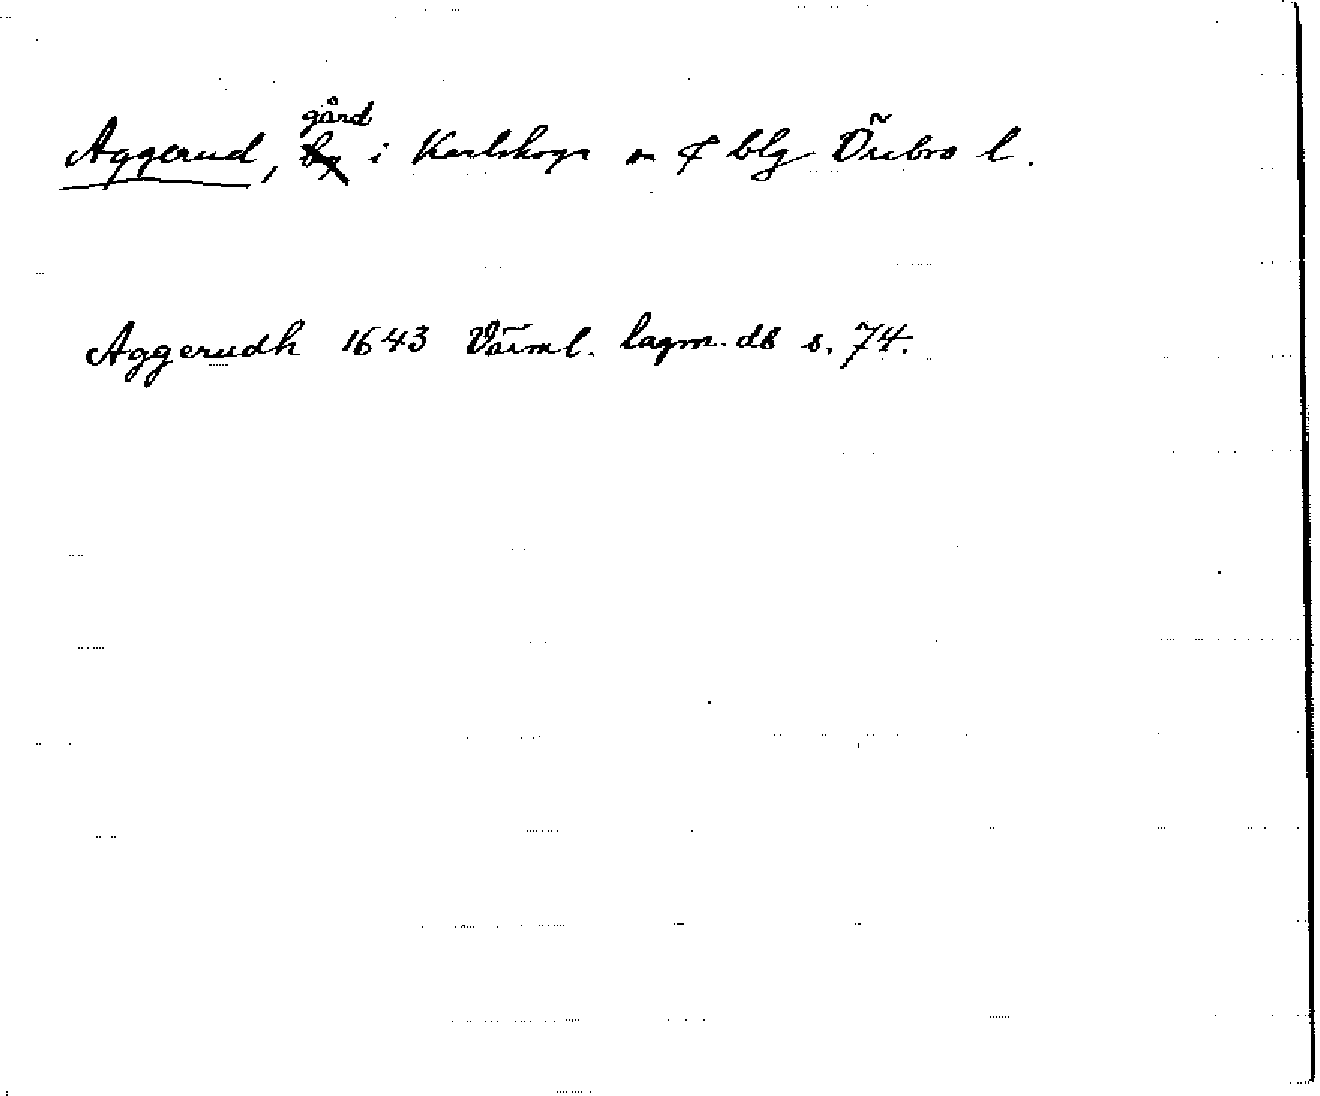 gård
Aggerud, by i Karlskoga sn o blg Örebro l.
Aggerudh 1643 Värml. lagm. db s. 74.